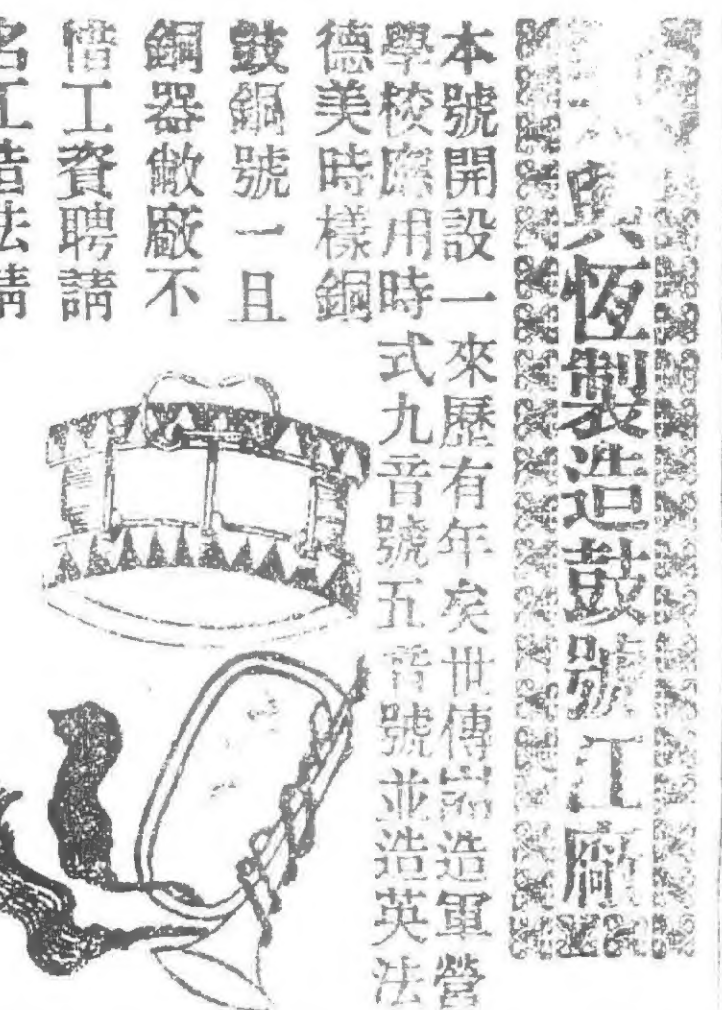 恆製造鼓號工廠
本號開設一來歷有年矣世傳造軍營
學校應用時式九音號五音號並造英法
德美時樣銅
鼓銅號一且
銅器敝廠不
惜工資聘請
名工造法精